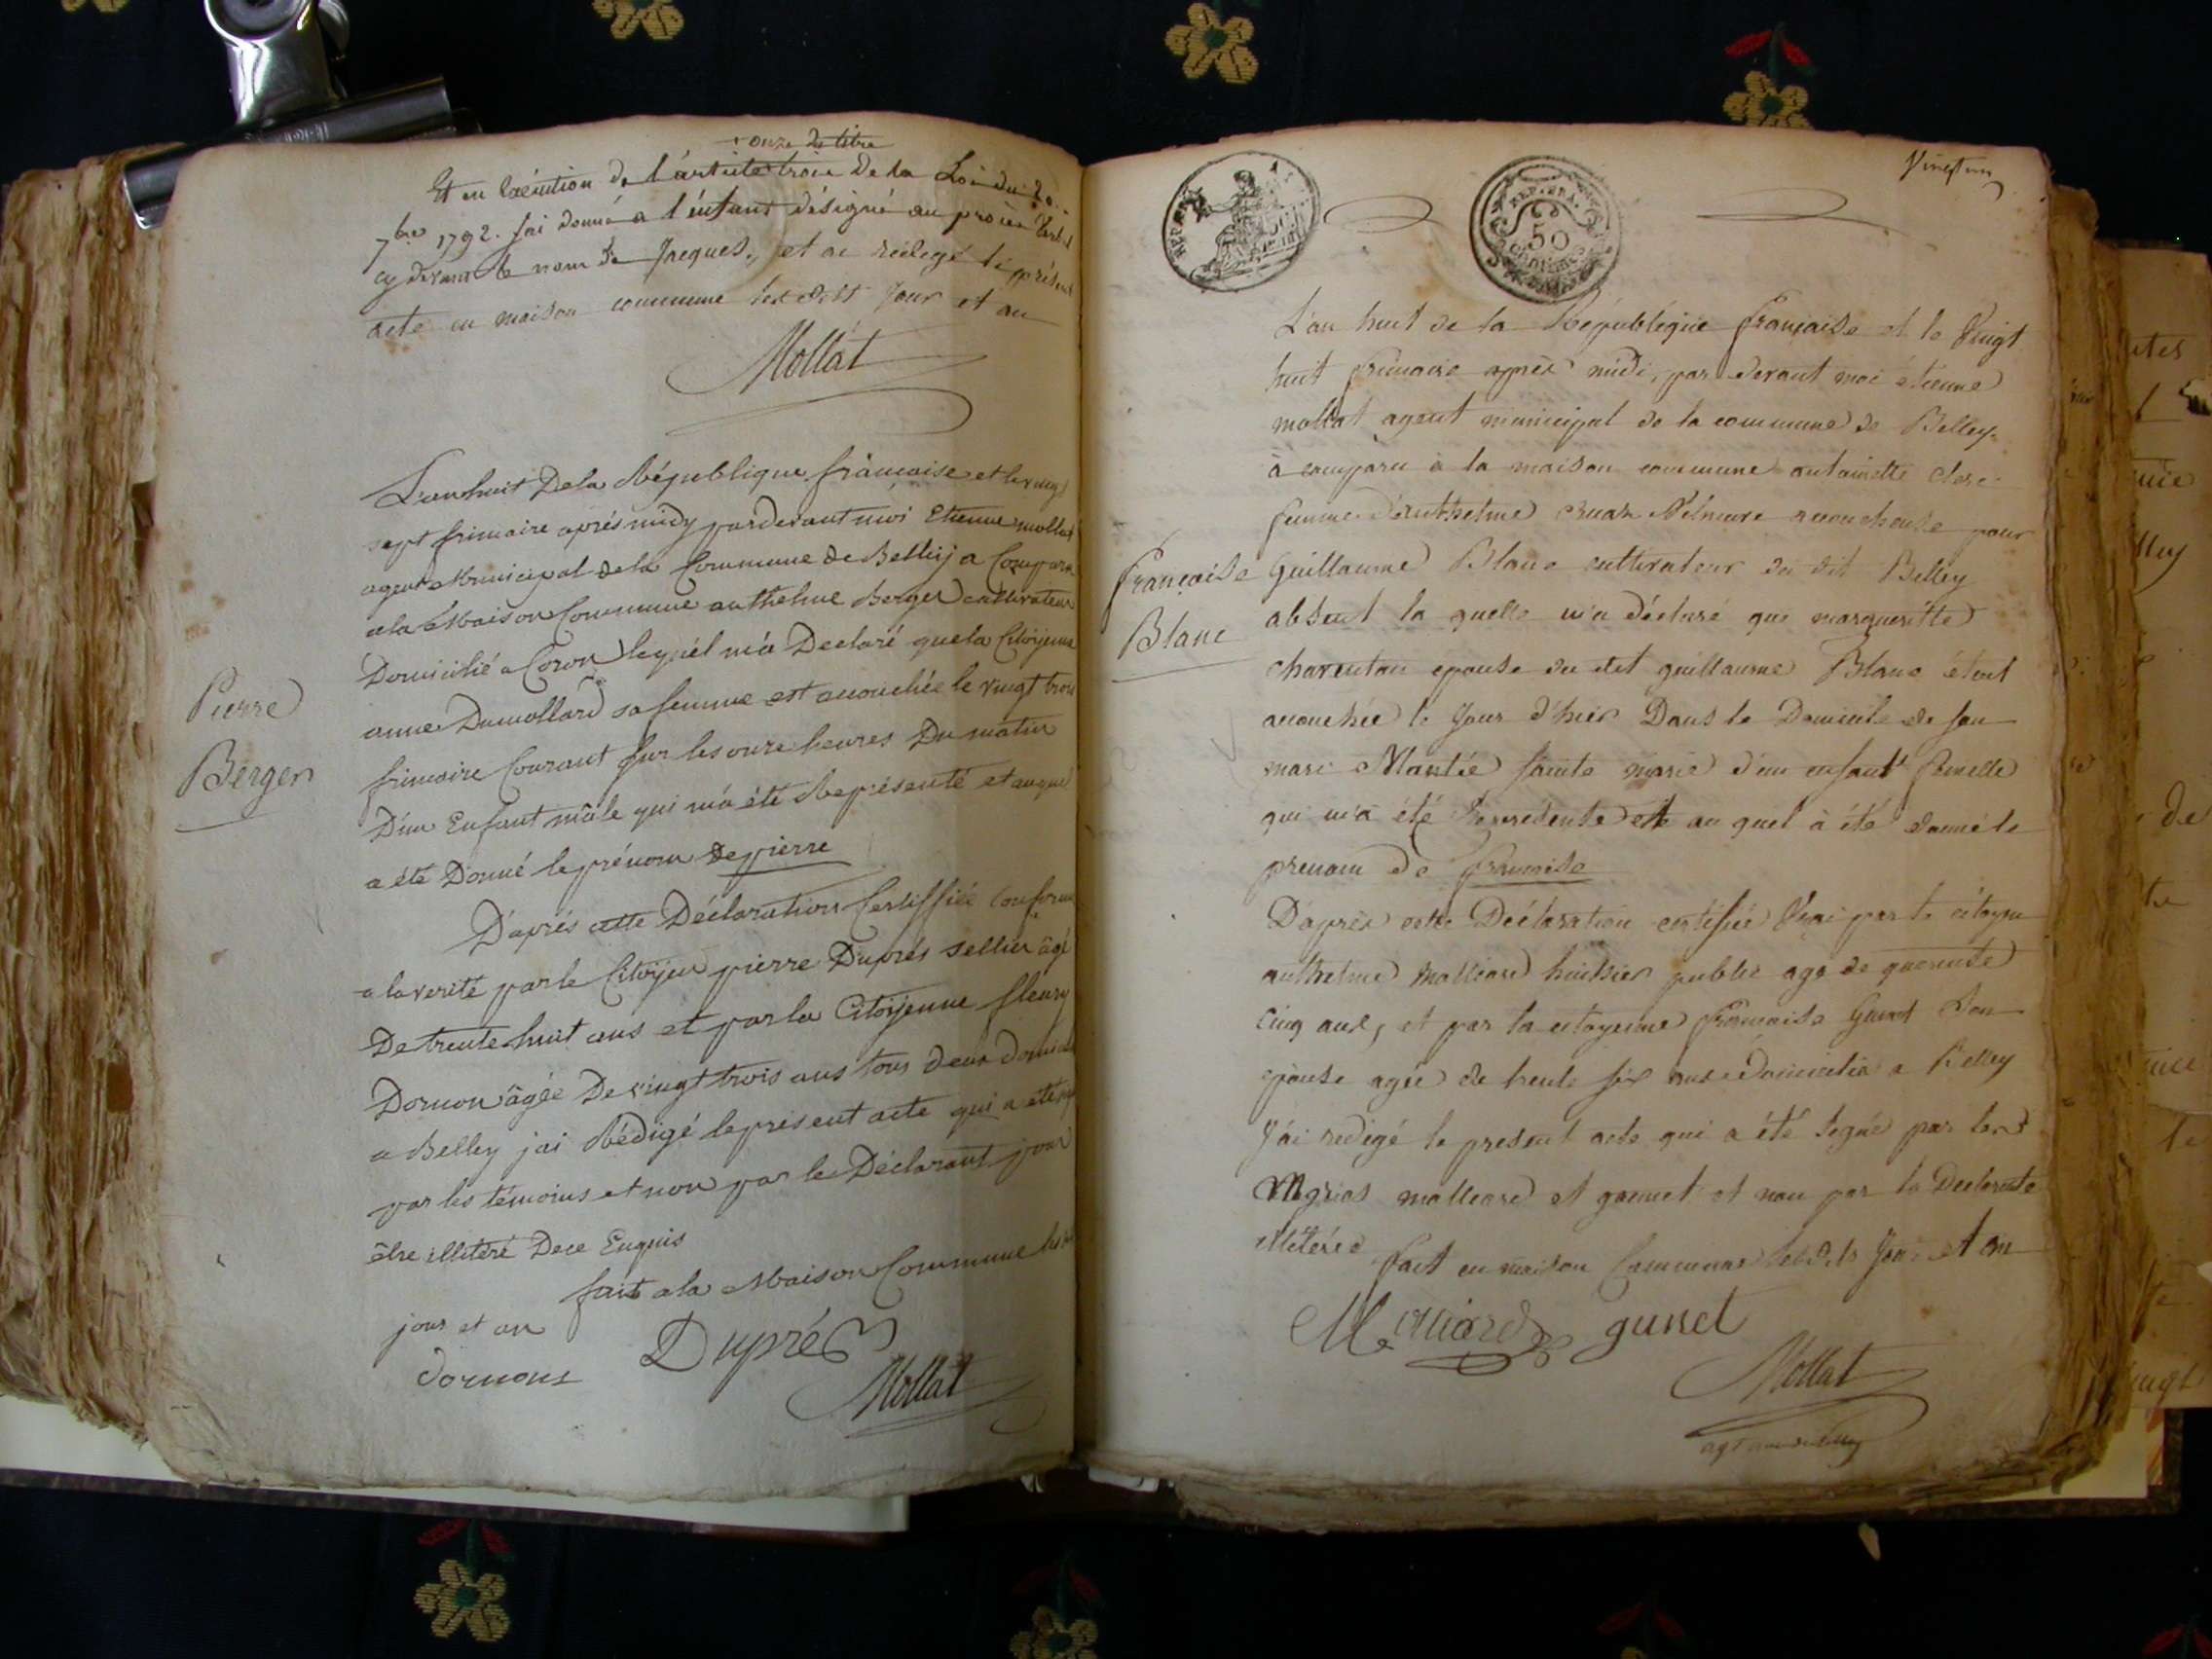 onze du titre
Et en Exécution de l'article trois De la Loi du 20.
7bre 1792. j'ai donné a l'enfant désigné au procès Verbal
cy devant le nom de Jacques, et ai rédigé le présent
acte en maison commune les dits Jour et an
Mollat
L'an huit De la République française et le vingt
sept frimaire après midy pardevant moi Etienne mollat
agent Municipal de la Commune de Belley a Comparu
a la Maison Commune anthelme Berger cultivateur
Domicilié a Coron lequel m'a Declaré que la Citoÿenne
anne Dumollard sa femme est accouchée le vingt trois
frimaire Courant sur les onze heures Du matin
D'un Enfant mâle qui m'a été Représenté et auquel
a été Donné le prénom de pierre
Pierre
Berger
D'aprés cette Déclaration Certiffiée Conforme
a la verité par le Citoÿen pierre Duprés sellier âgé
De trente huit ans et par la Citoÿenne fleury
Dornon âgée De vingt trois ans tous deux domiciliés
a Belley j'ai Rédigé le présent acte qui a été signé
par les témoins et non par le Déclarant pour
être illitéré De ce Enquis
fait a la Maison Commune les
jour et an
dornons Dupré
Mollat
Vingt un
REP. FRA.
50
CENTIMES
L'an huit de la République française et le Vingt
huit frimaire après midi, par devant moi étienne
mollat agent municipal de la commune de Belley
à comparu à la maison commune antoinette clerc
femme d'anthelme accoucheuse pour
Guillaume Blanc cultivateur du dit Belley
absent la quelle m'a déclaré que margueritte
charenton epouse du dit guillaume Blanc étoit
accouchée le Jour d'hier Dans le Domicile de son
mari sainte marie d'un enfant femelle
qui m'a été Representé et au quel à été donné le
prenom de françoise
Françoise
Blanc
D'après cette Déclaration certifiée Vrai par le citoyen
anthelme huissier public age de quarente
cinq ans, et par la citoyenne françoise son
epouse agée de trente six ans Domiciliés a Belley
J'ai redigé le present acte qui a été signé par les
et et non par la Declarante
illitérée fait en maison Commune les dits Jour et an
gunet
Mollat